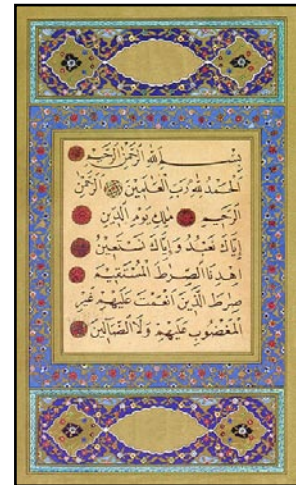 بِسْمِ اللهِ الرَّحْمٰنِ الرَّحِيمِ
اَلْحَمْدُ لِلهِ رَبِّ الْعَالَمِينَ اَلرَّحْمٰنِ
الرَّحِيمِ مَالِكِ يَوْمِ الدِّينِ
اِيَّاكَ نَعْبُدُ وَاِيَّاكَ نَسْتَعِينُ
اِهْدِنَا الصِّرَاطَ الْمُسْتَقِيمَ
صِرَاطَ الَّذِينَ اَنْعَمْتَ عَلَيْهِمْ غَيْرِ
الْمَغْضُوبِ عَلَيْهِمْ وَلَا الضَّالِّينَ